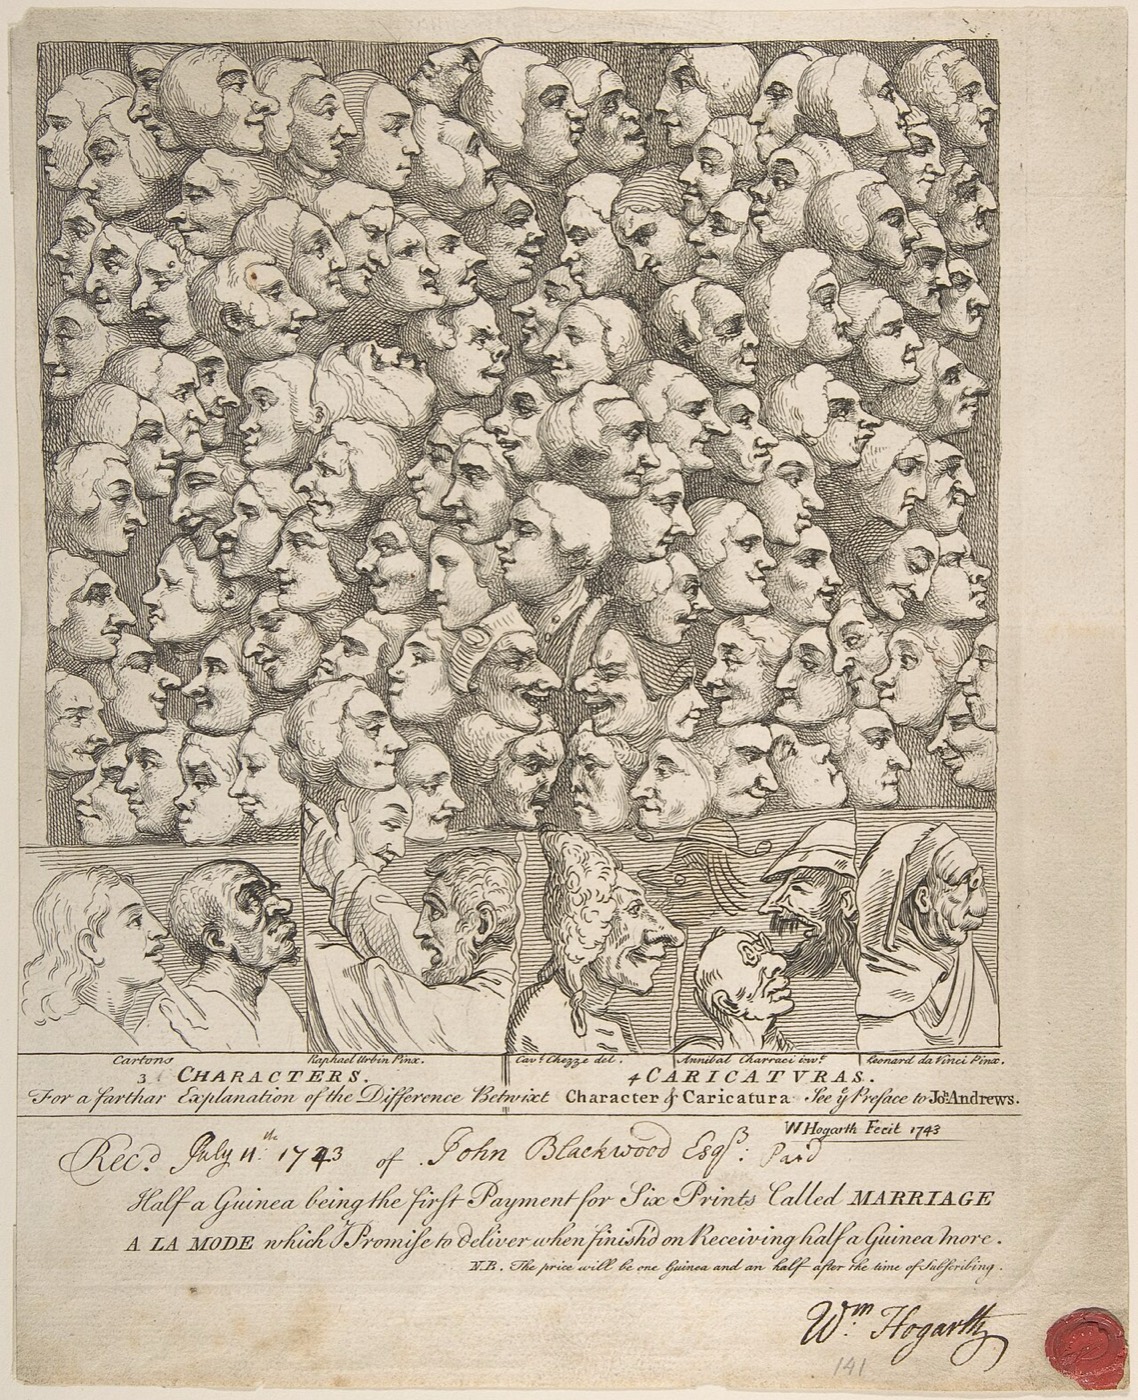 Cartons Raphael Urbin Pinx. Cav.r Chezze del. Annibal Charraci inv.t Leonard da Vinci Pinx.
3 CHARACTERS. 4 CARICATVRAS.
For a farthar Explanation of the Difference Betwixt Character & Caricatura See y.e Preface to Jo.h Andrews.
W Hogarth Fecit 1743
Rec.d July 11.th 1743 of John Blackwood Esq.r: Paid
Half a Guinea being the first Payment for Six Prints Called MARRIAGE
A LA MODE which I Promise to deliver when finish'd on Receiving half a Guinea more.
N.B. The price will be one Guinea and an half after the time of Subscribing.
W.m Hogarth
141